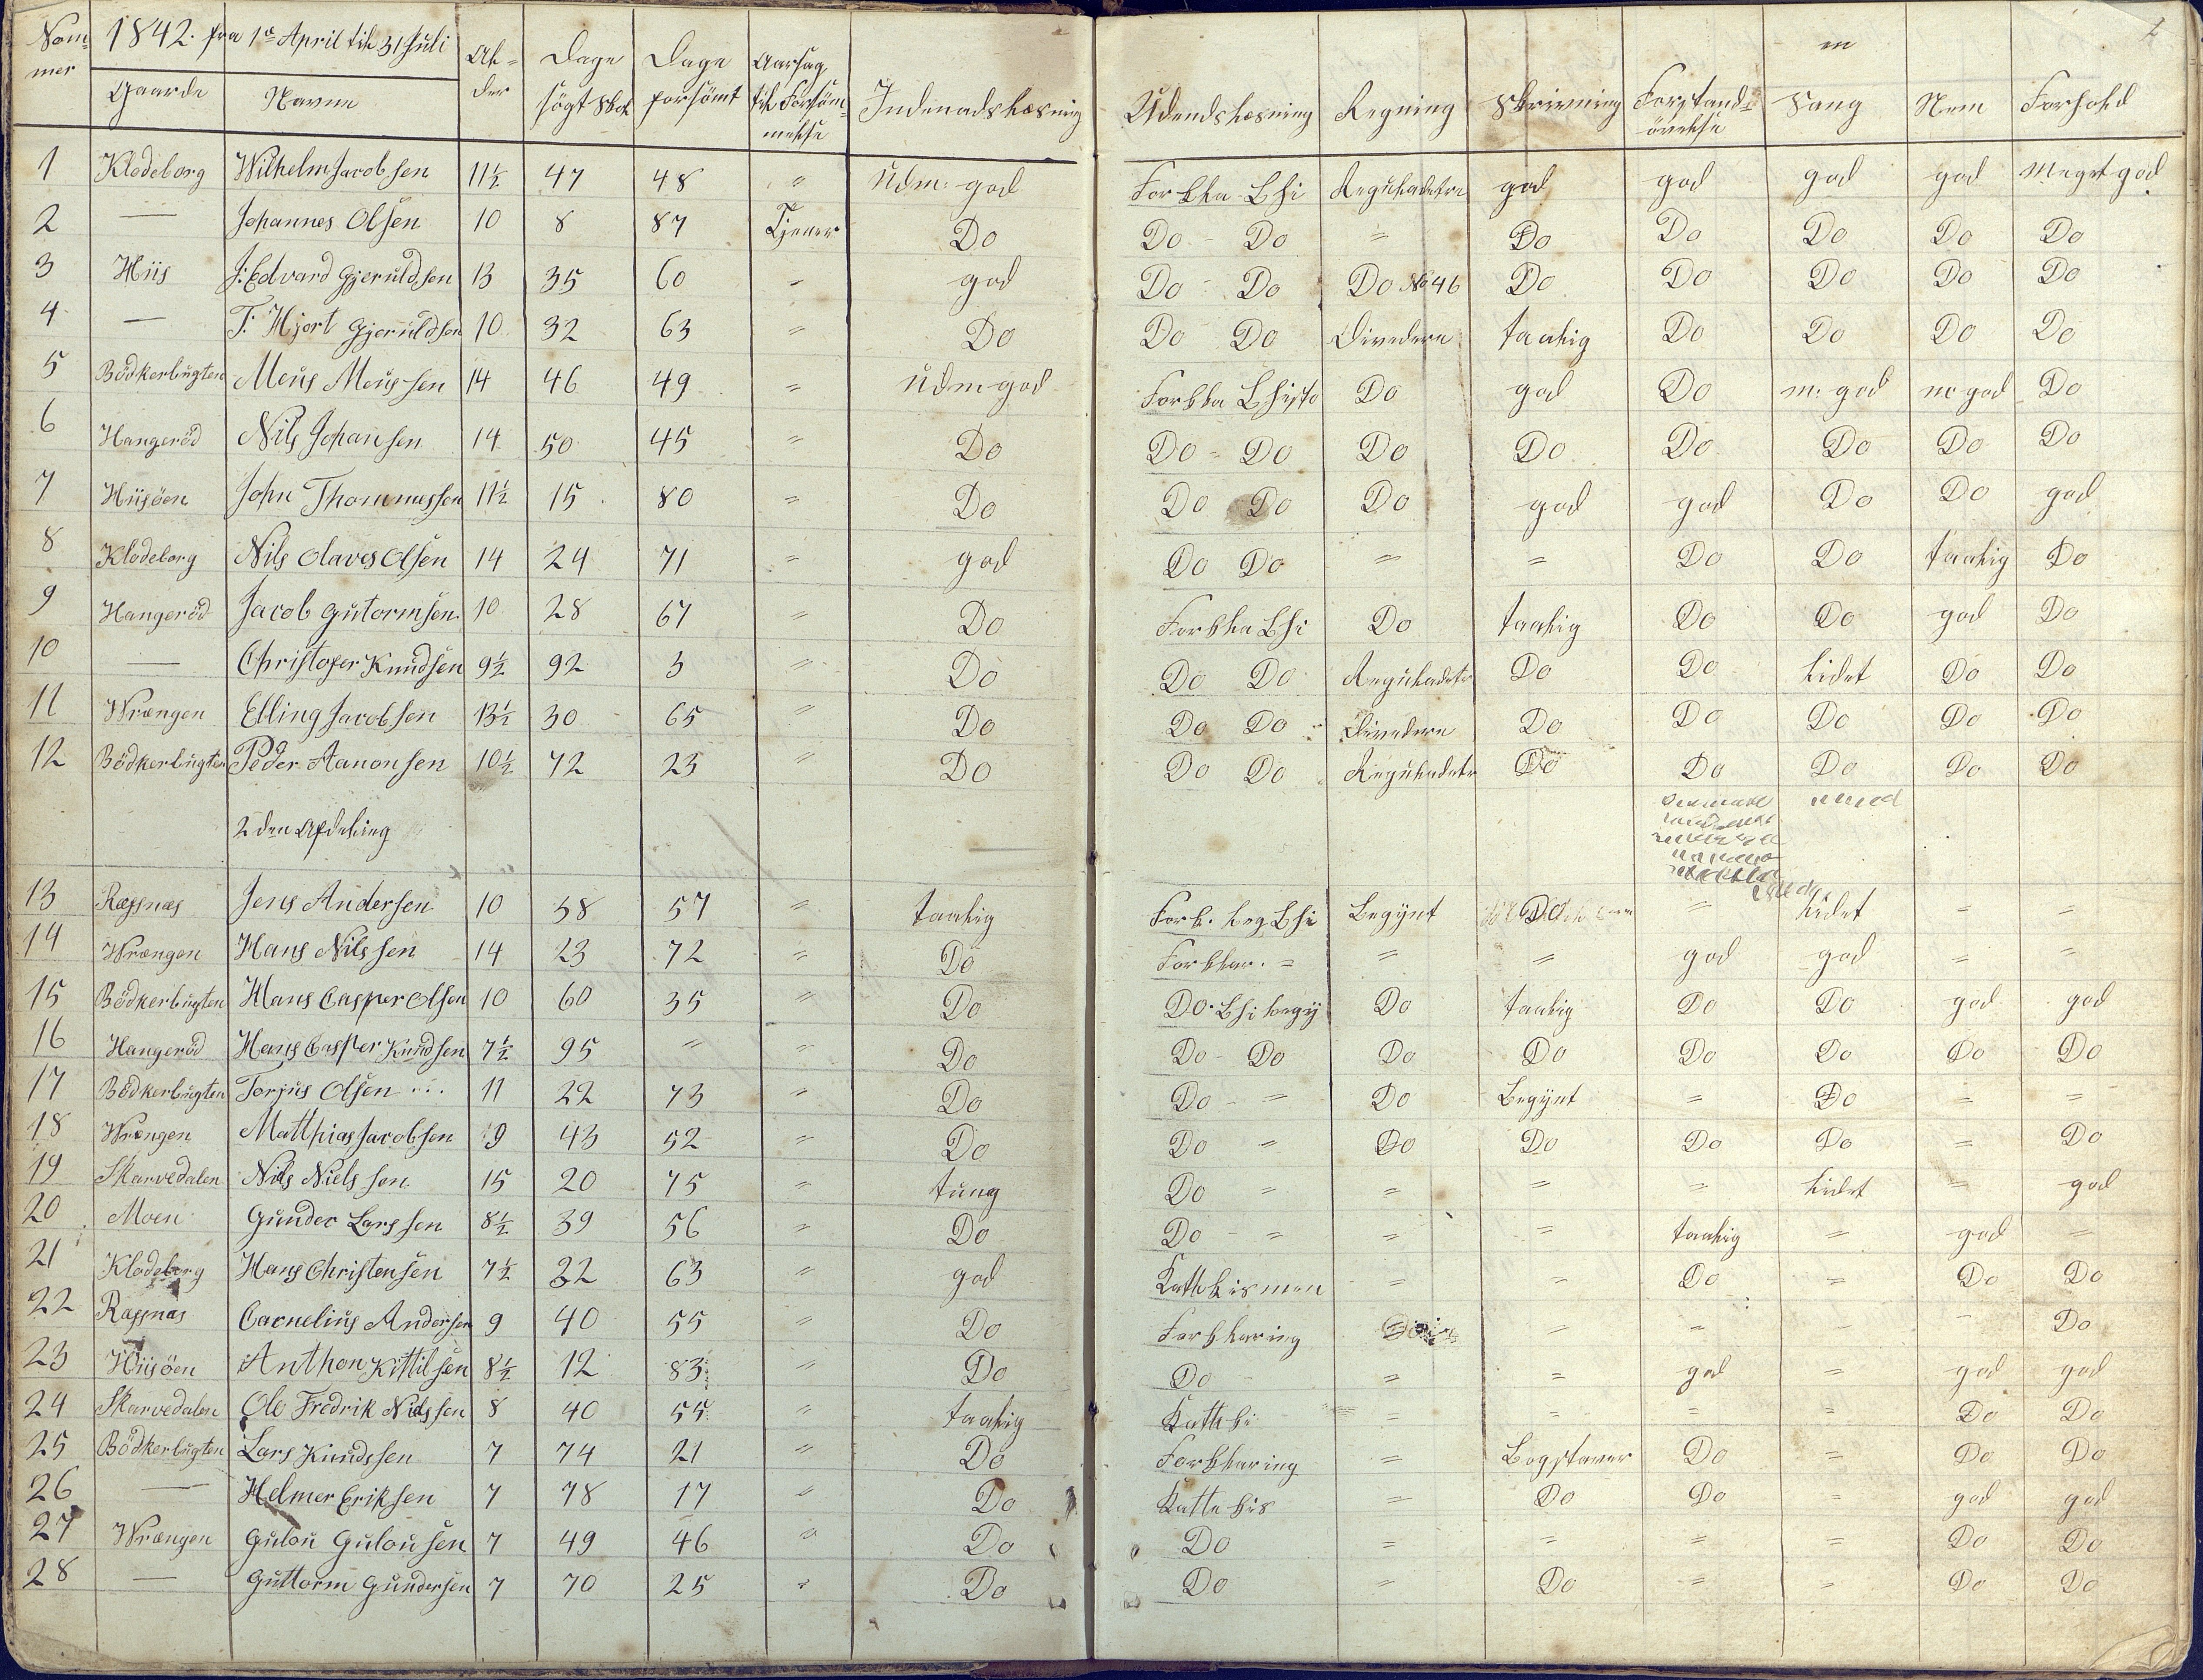 Nom- 1842. fra 1ste April til 31 Juli Al- Dage Dage Aarsag
mer Gaarde Navne der søgt Skol forsømt til Forsøm- Indenadslæsning Udendslæsning Regning Skrivning Forstands- Sang Nem Forhold
melse øvelse
1 Klodeborg Wilhelm Jacobsen 11½ 47 48 " Udm: god Forkla. Bhi Reguladetri god god god god Meget god
2 — Johannes Olsen 10 8 87 Tjener Do Do - Do = Do Do Do Do Do
3 Hiis J: Edvard Gjeruldsen 13 35 60 " god Do - Do Do No 46 Do Do Do Do Do
4 — T. Hjort Gjeruldsen 10 32 63 " Do Do Do Divedere taalig Do Do Do Do
5 Bödkerbugten Meus Meussen 14 46 49 " Udm god Forkla Bhisto Do god Do m: god m god Do
6 Hangeröd Nils Johansen 14 50 45 " Do Do = Do Do Do Do Do Do Do
7 Hiisöen John Thommessen 11½ 15 80 " Do Do Do Do god god Do Do god
8 Klodeborg Nils Olaves Olsen 14 24 71 " god Do Do = = Do Do taalig Do
9 Hangeröd Jacob Gutormsen 10 28 67 " Do Forkla Bhi Do taalig Do Do god Do
10 — Christofer Knudsen 9½ 92 3 " Do Do Do Reguladetr Do Do lidet Do Do
11 Wrængen Elling Jacobsen 13½ 30 65 " Do Do Do Divedere Do Do Do Do Do
12 Bödkerbugten Peder Aanonsen 10½ 72 23 " Do Do Do Reguladetr Do Do Do Do Do
2den Afdeling
13 Ræsnæs Jens Andersen 10 38 57 " taalig Fork. beg. Bhi Begynt Do = lidet = =
14 Wrængen Hans Nilssen 14 23 72 " Do Forklar. = = = god god = =
15 Bödkerbugten Hans Casper Olsen 10 60 35 " Do Do. Bhi begy Do taalig Do Do god god
16 Hangeröd Hans Casper Knudsen 7½ 95 " " Do Do - Do Do Do Do Do Do Do
17 Bödkerbugten Torjus Olsen 11 22 73 " Do Do - = Do Begynt = Do = =
18 Wrængen Matthias Jacobsen 9 43 52 " Do Do = Do Do Do Do = Do
19 Skarvedalen Nils Nielssen 15 20 75 " tung Do = = = = lidet = god
20 Moen Gunder Larssen 8½ 39 56 " Do Do - = = = taalig = god =
21 Klodeborg Hans Christensen 7½ 32 63 " god Kathekismen = = Do = Do Do
22 Ræsnæs Carnelius Andersen 9 40 55 " Do Forklaring = = Do
23 Hiisöen Anthon Kittilsen 8½ 12 83 " Do Do - = = god = god god
24 Skarvedalen Ole Fredrik Nielssen 8 40 55 " taalig Katheki = = = = Do Do
25 Bödkerbugten Lars Knudssen 7 74 21 " Do Forklaring = Bogstaver Do = Do Do
26 — Helmer Eriksen 7 78 17 " Do Kattekis = Do Do = god god
27 Wrængen Gulou Gulousen 7 49 46 " Do Do = = = = Do Do
28 — Guttorm Gundersen 7 70 25 " Do Do = Do = = Do Do